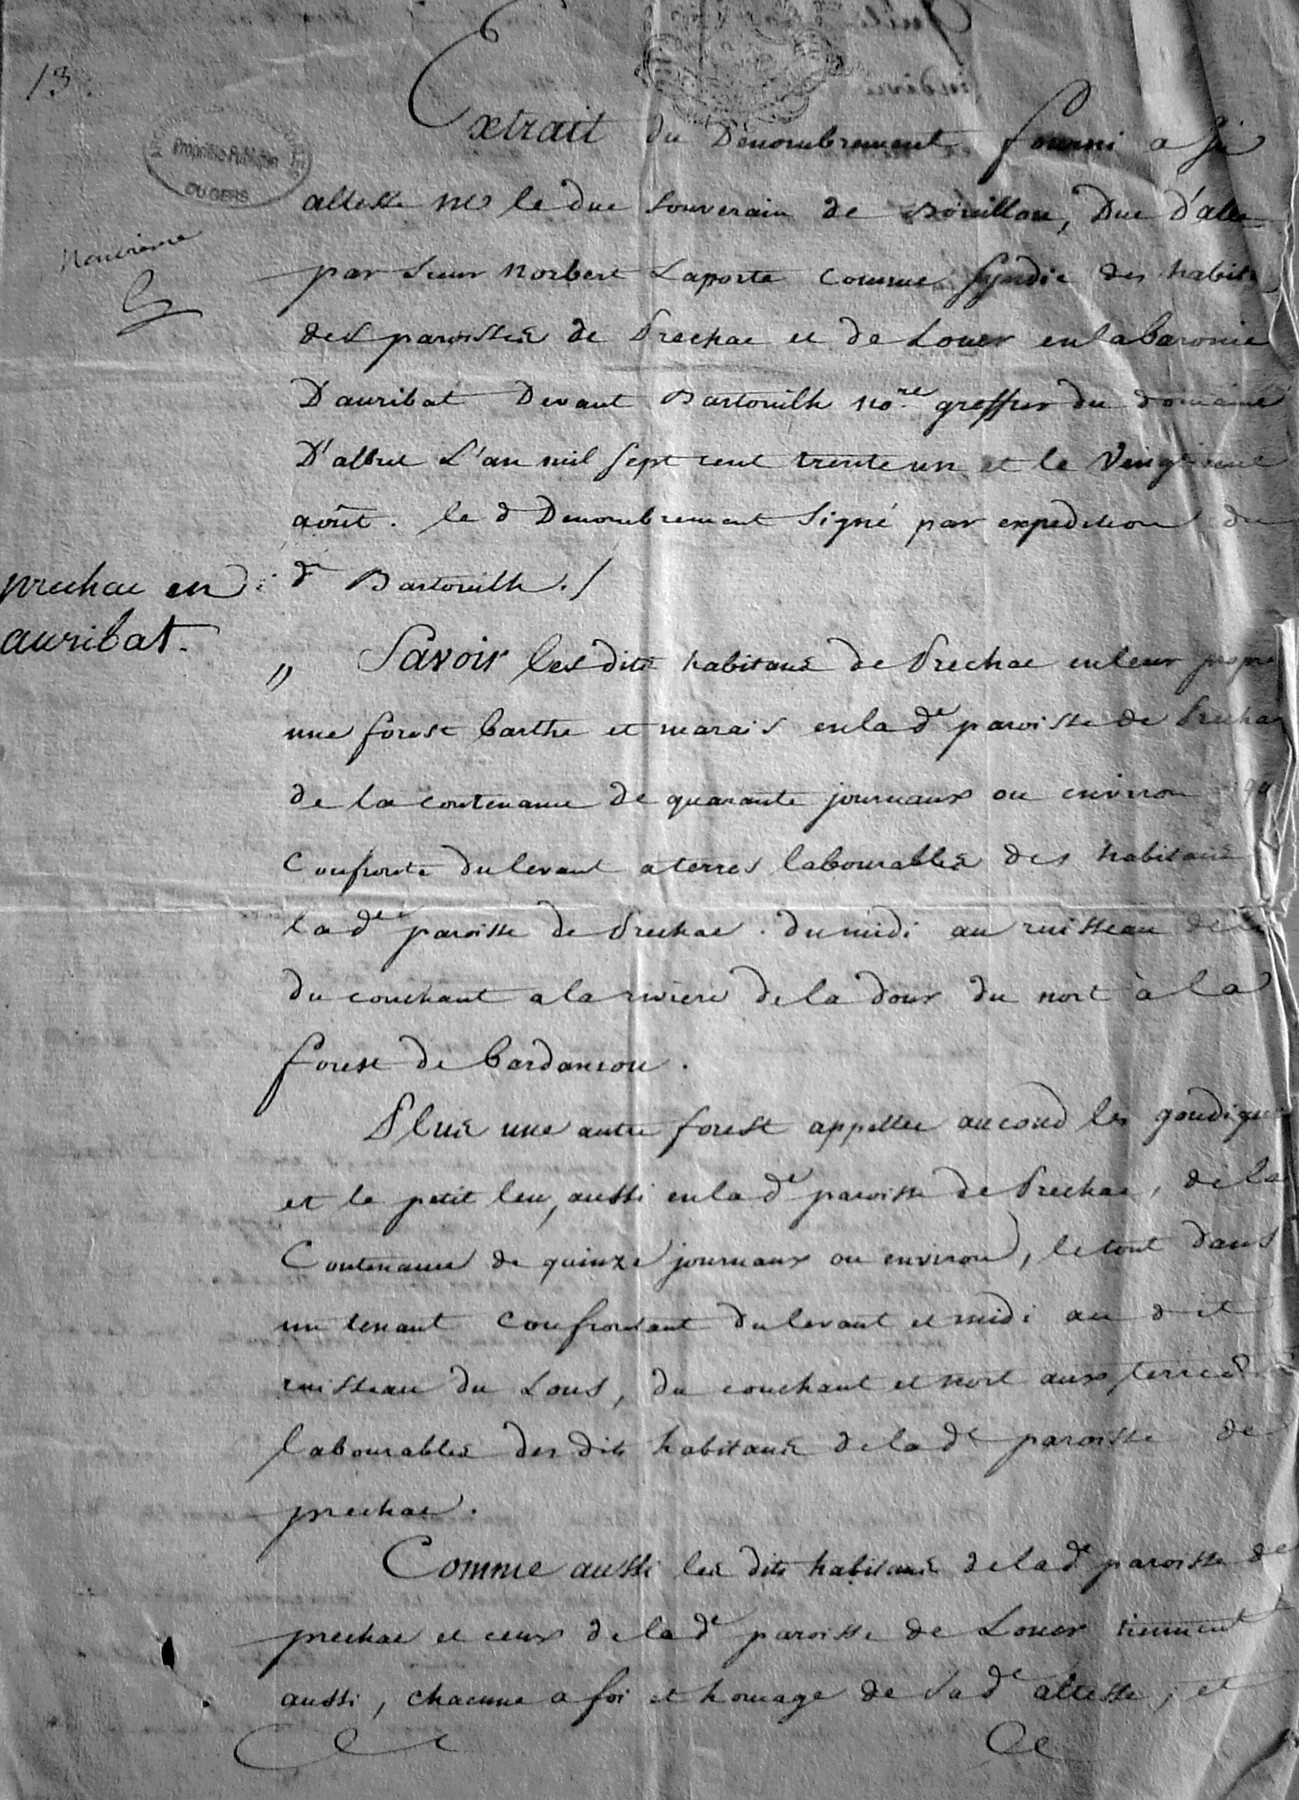 13.
Propriété Publique
DU GERS
Extrait du Denombrement fourni a Sa
altesse Mr le duc Souverain de Boüillon, Duc d'albr
par Sieur Norbert Laporte comme Syndic des habit
des paroisses de Prechac et de Louer en la baronie
D'auribat Devant Bartouilh no.re greffier du domaine
D'albret L'an mil Sept cent trente un et le Vingt
août. le d Denombrement Signé par expedition du
d. Bartouilh ./
prechac en
auribat.
" Savoir les dits habitans de Prechac en leur propre
une forest barthe et marais en la de paroisse de Precha
de la contenance de quarante journaux ou environ qui
Confronte du levant a terres labourables des habitans
la de paroisse de Prechac. du midi au ruisseau de
du couchant a la riviere de la dour du nort à la
forest de bardancou.
Plus une autre forest appellée au coud les goudigues
et le petit leu, aussi en la de paroisse de Prechac, de la
Contenance de quinze journaux ou environ, le tout dans
un tenant Confrontant du levant et midi au dit
ruisseau du Lous, du couchant et nort aux terres
labourables des dits habitans de la de paroisse de
prechac.
Comme aussi les dits habitans de la de paroisse de
prechac et ceux de la de paroisse de Louer tiennent
aussi, chacune a foi et homage de Sa de altesse, et